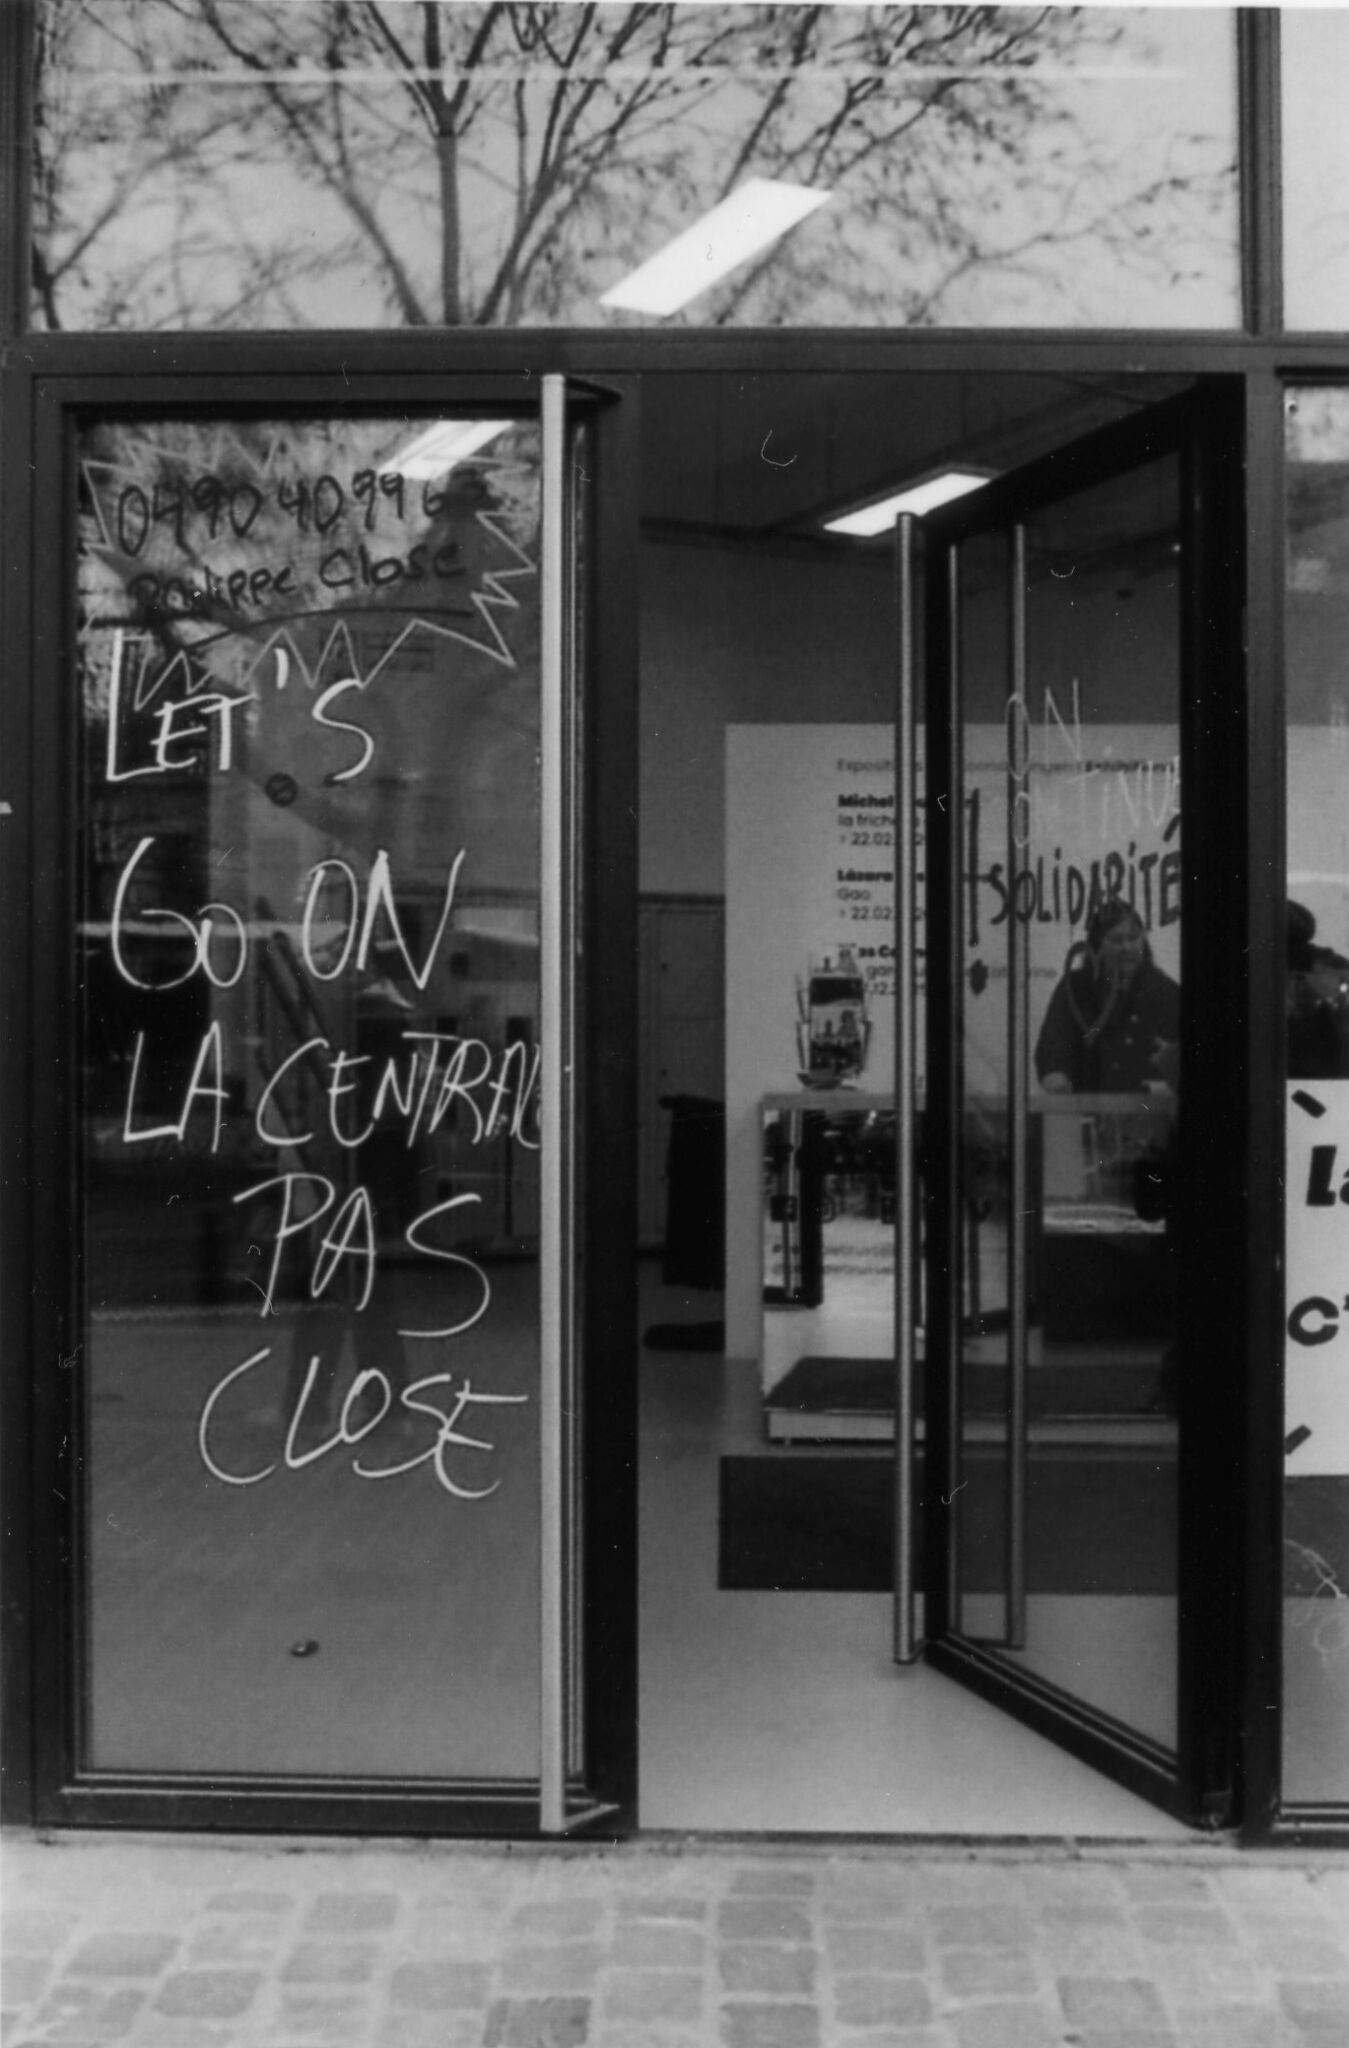 0490 40 99 6
Philippe Close
LET'S
GO ON
LA CENTRALE
PAS
CLOSE
ON
CONTINUE
SOLIDARITÉ
Exhibition
Michel
la friche
> 22.02
Lázara
Gao
> 22.02
La
C'